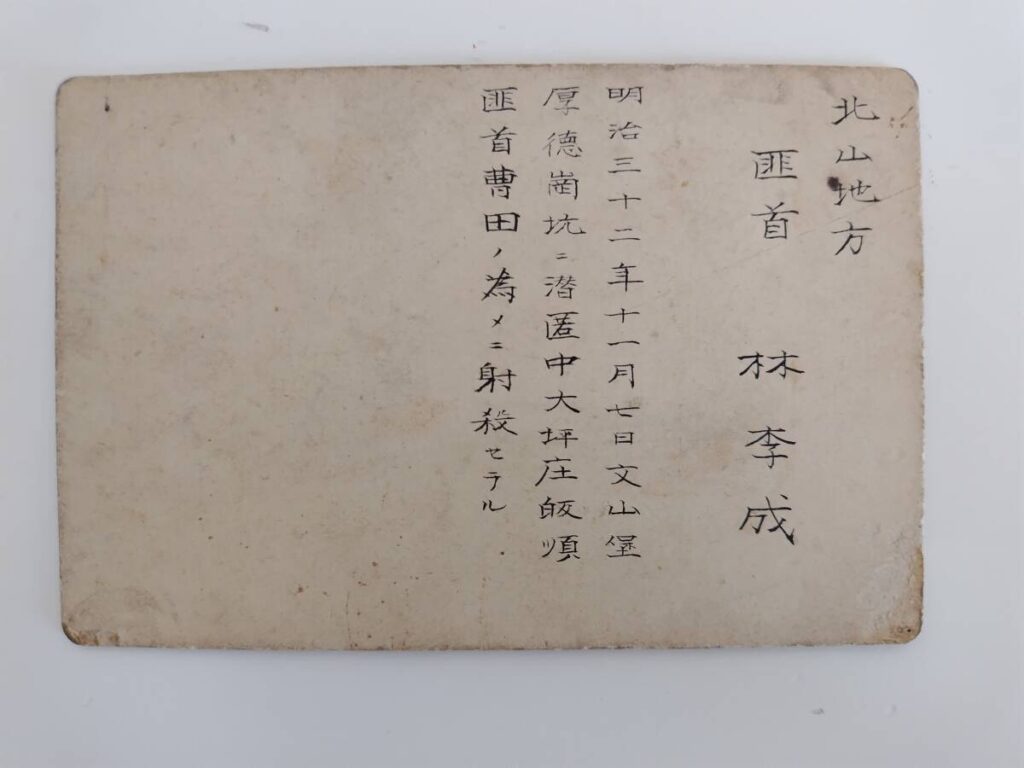 北山地方
匪首 林李成
明治三十二年十一月七日文山堡
厚德崗坑ニ潜匿中大坪庄皈順
匪首曹田ノ為メニ射殺セラル